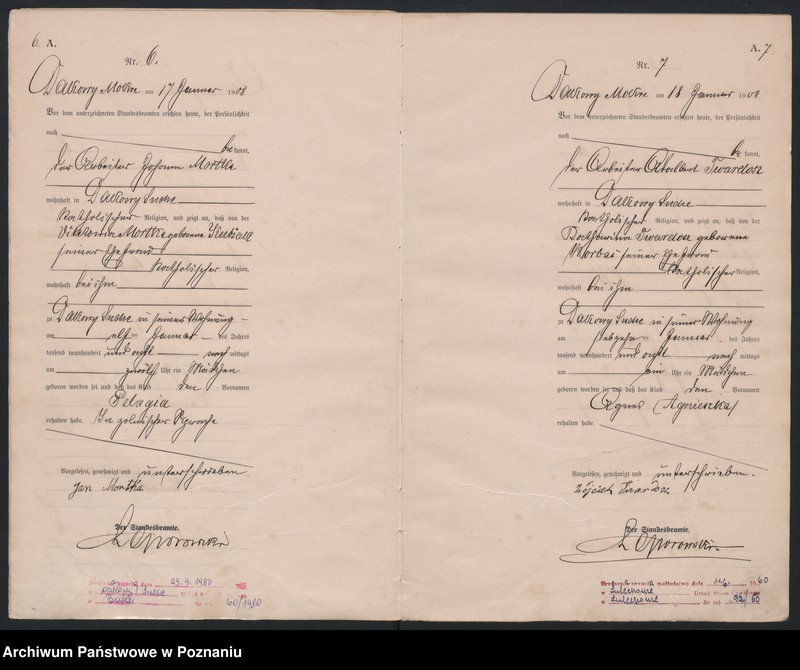 6. A.
Nr. 6.
Dalkowy Mokre am 17 Januar 1908
Vor dem unterzeichneten Standesbeamten erschien heute, der Persönlichkeit
nach
be kannt,
der Arbeiter Johann Mortka
wohnhaft in
katholischer Religion, und zeigt an, daß von der
Viktoria Mortka geborene
seiner Ehefrau
katholischer Religion,
wohnhaft bei ihm
zu in seiner Wohnung
am elf Januar des Jahres
tausend neunhundert und acht nach mittags
um zwölf Uhr ein Mädchen
geboren worden sei und daß das Kind den Vornamen
Pelagia
erhalten habe. In polnischer Sprache
Vorgelesen, genehmigt und unterschrieben
Jan Mortka
Der Standesbeamte.
60/1980
A. 7.
Nr. 7
Dalkowy Mokre am 18 Januar 1908
Vor dem unterzeichneten Standesbeamten erschien heute, der Persönlichkeit
nach
be kannt,
der Arbeiter Adalbert Twardosz
wohnhaft in
katholischer Religion, und zeigt an, daß von der
Katharina Twardosz geborene
seiner Ehefrau
katholischer Religion,
wohnhaft bei ihm
zu in seiner Wohnung
am siebzehn Januar des Jahres
tausend neunhundert und acht nach mittags
um ein Uhr ein Mädchen
geboren worden sei und daß das Kind den Vornamen
Agnes (Agnieszka)
erhalten habe.
Vorgelesen, genehmigt und unterschrieben.
Der Standesbeamte.
Archiwum Państwowe w Poznaniu